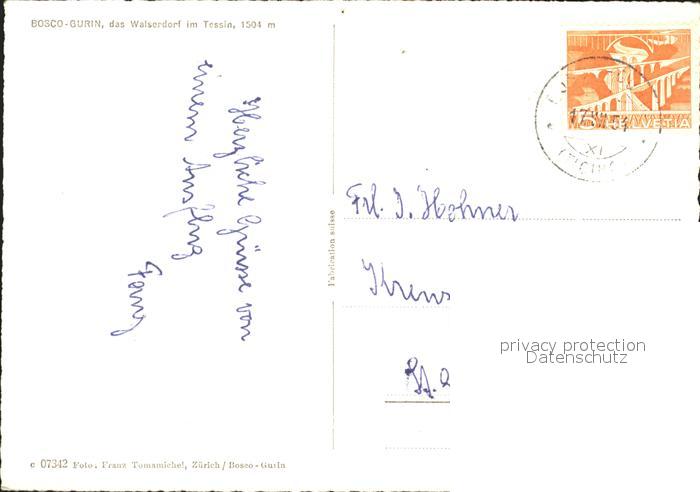 BOSCO-GURIN, das Walserdorf im Tessin, 1504 m
Herzliche Grüsse von
einem Ausflug
Fabrication suisse
HELVETIA
Frl. I. Hohner
privacy protection
Datenschutz
c 07342 Foto: Franz Tomamichel, Zürich / Bosco-Gurin